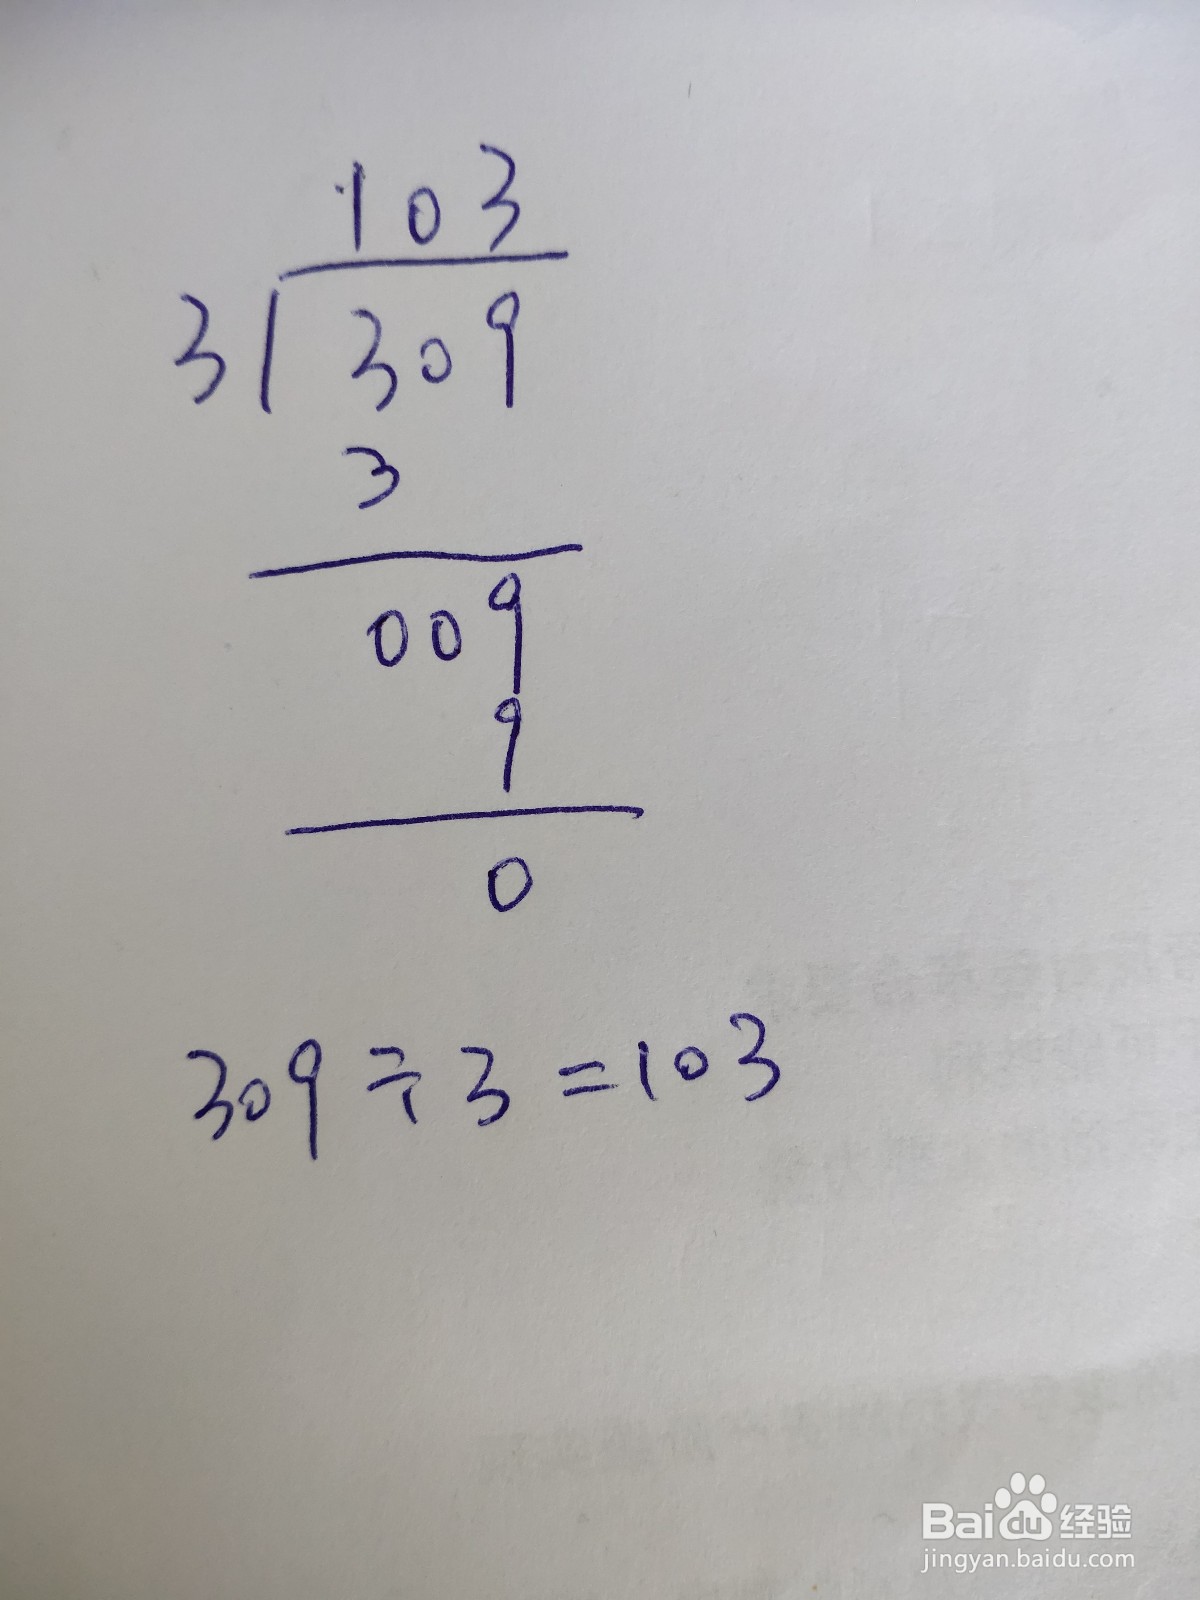 103
3 309
3
009
9
0
309÷3=103
Baidu经验
jingyan.baidu.com